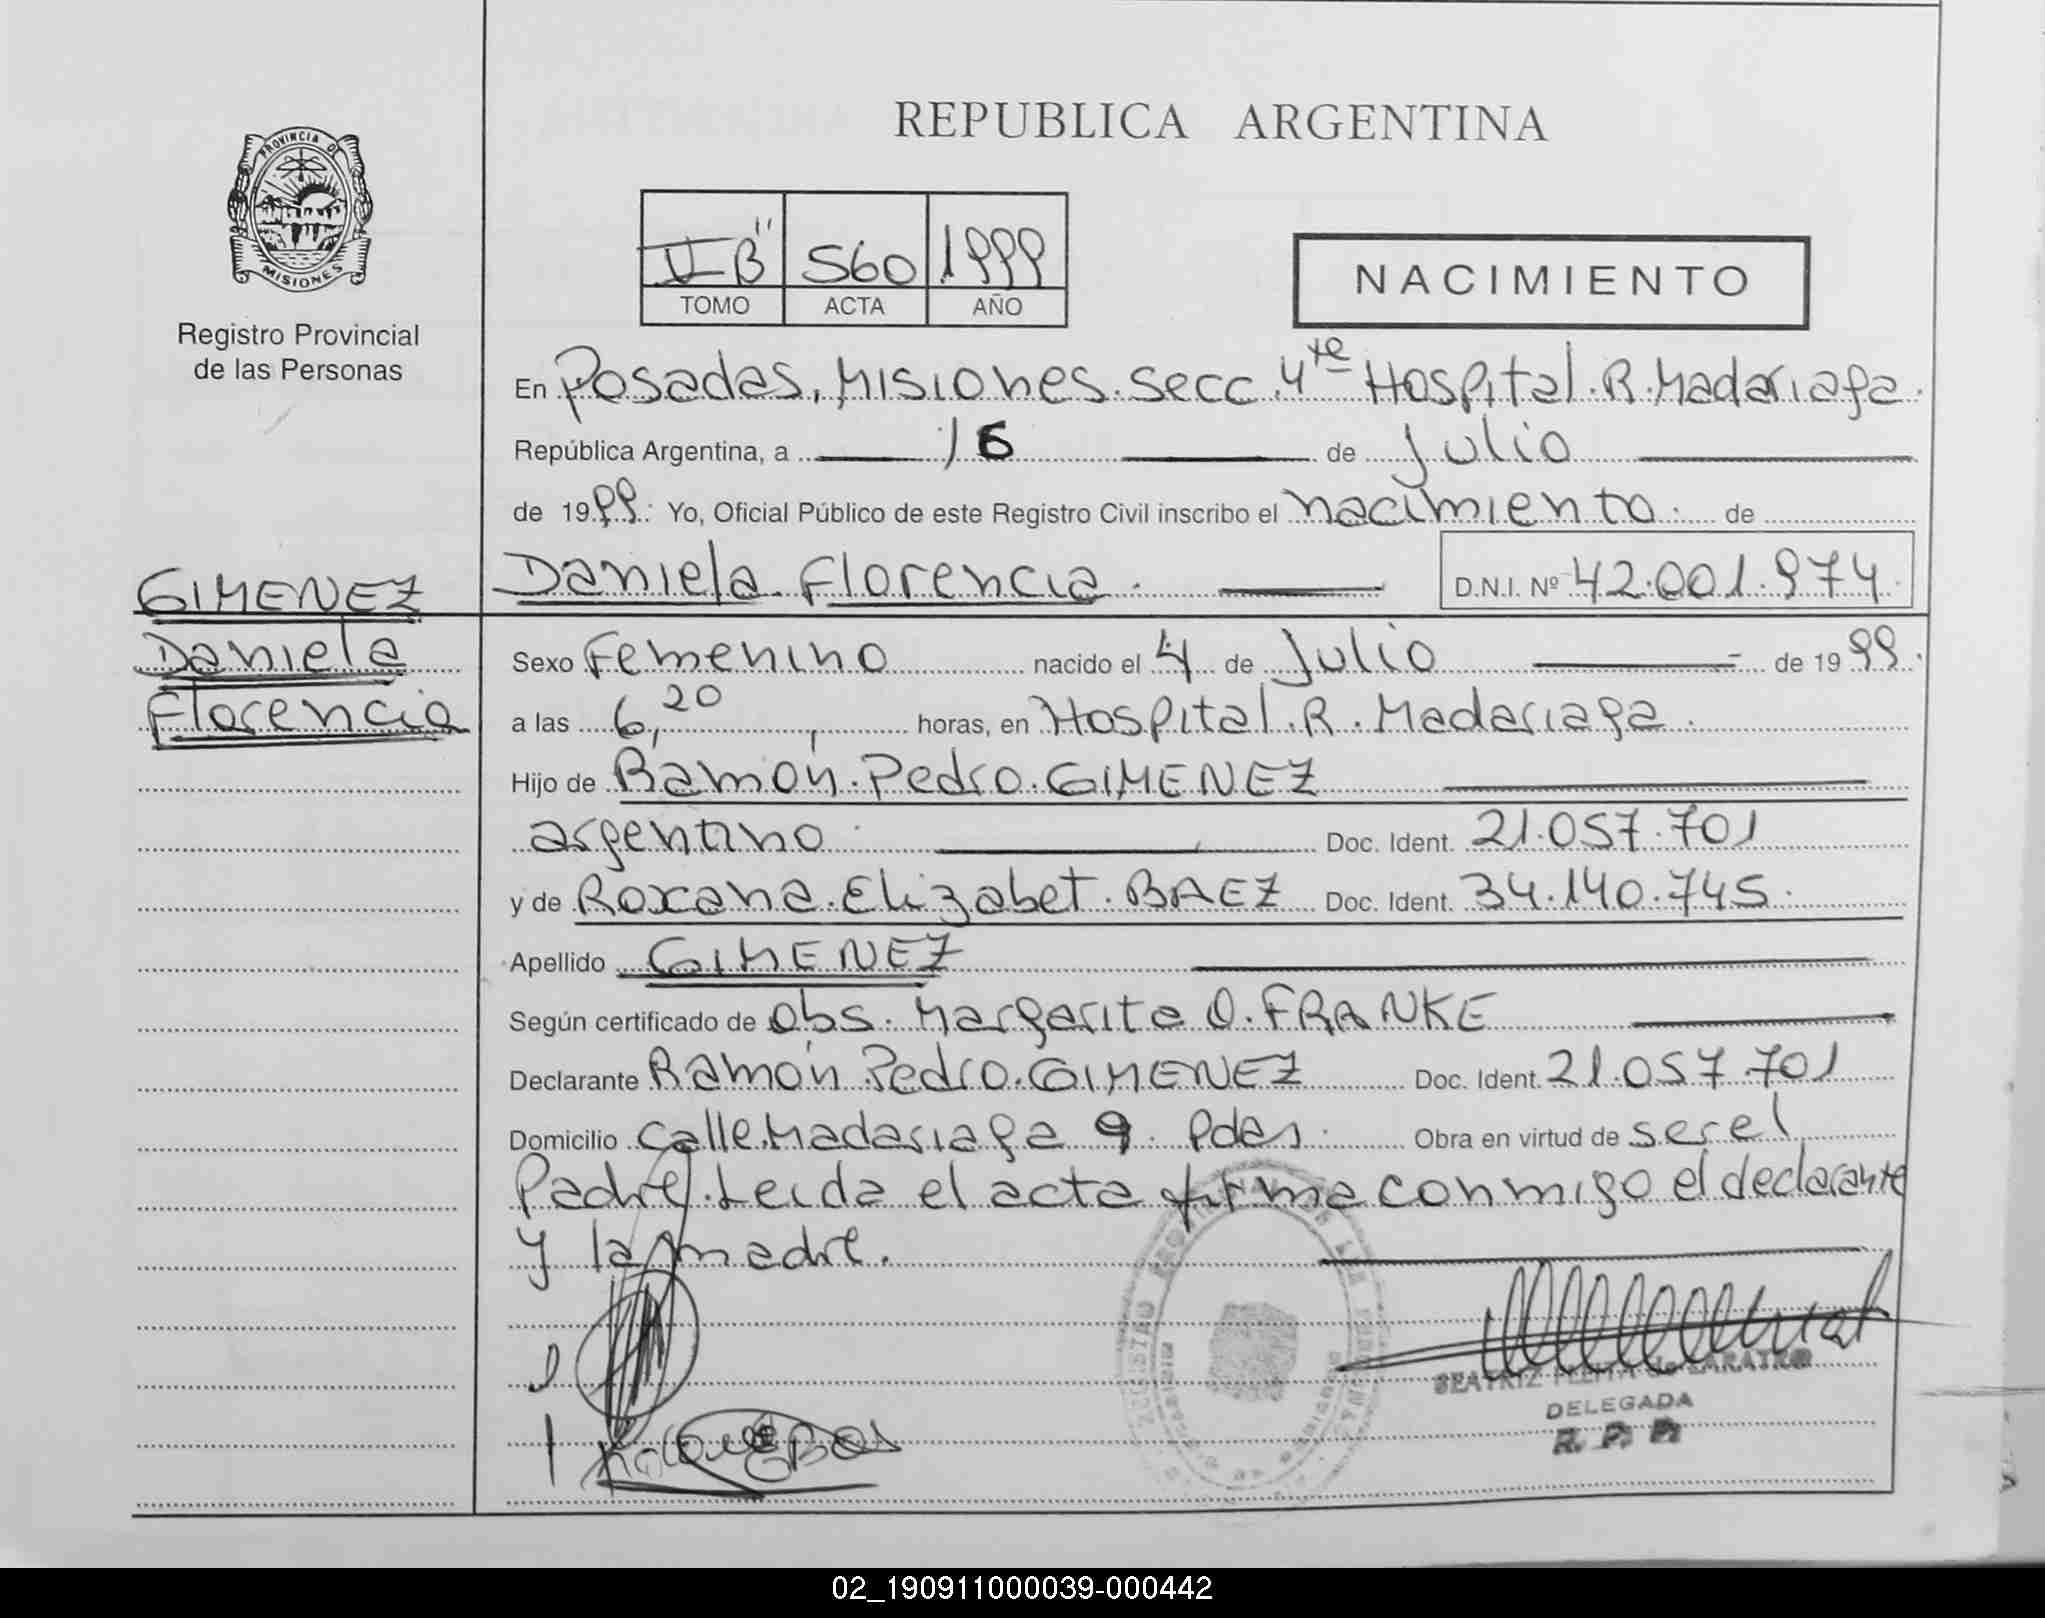 REPUBLICA ARGENTINA
PROVINCIA D
MISIONES
Registro Provincial
de las Personas
II B" 560 1999
TOMO ACTA AÑO
NACIMIENTO
En Posadas, Misiones. Secc. 4ta Hospital. R. Madariaga.
República Argentina, a 16 de Julio
de 1999. Yo, Oficial Público de este Registro Civil inscribo el nacimiento. de
Daniela Florencia. D.N.I. Nº 42.001.974.
GIMENEZ
Daniela
Florencia
Sexo Femenino nacido el 4 de Julio de 1999.
a las 6,20 horas, en Hospital. R. Madariaga.
Hijo de Ramón. Pedro. GIMENEZ
argentino. Doc. Ident. 21.057.701
y de Roxana. Elizabet. BAEZ Doc. Ident. 34.140.745.
Apellido GIMENEZ
Según certificado de Obs. Margarita O. FRANKE
Declarante Ramón Pedro. GIMENEZ Doc. Ident. 21.057.701
Domicilio Calle. Madariaga 9. Pdas. Obra en virtud de ser el
Padre. Leida el acta firma conmigo el declarante
y la madre.
BEATRIZ de
DELEGADA
R. P. P.
02_190911000039-000442